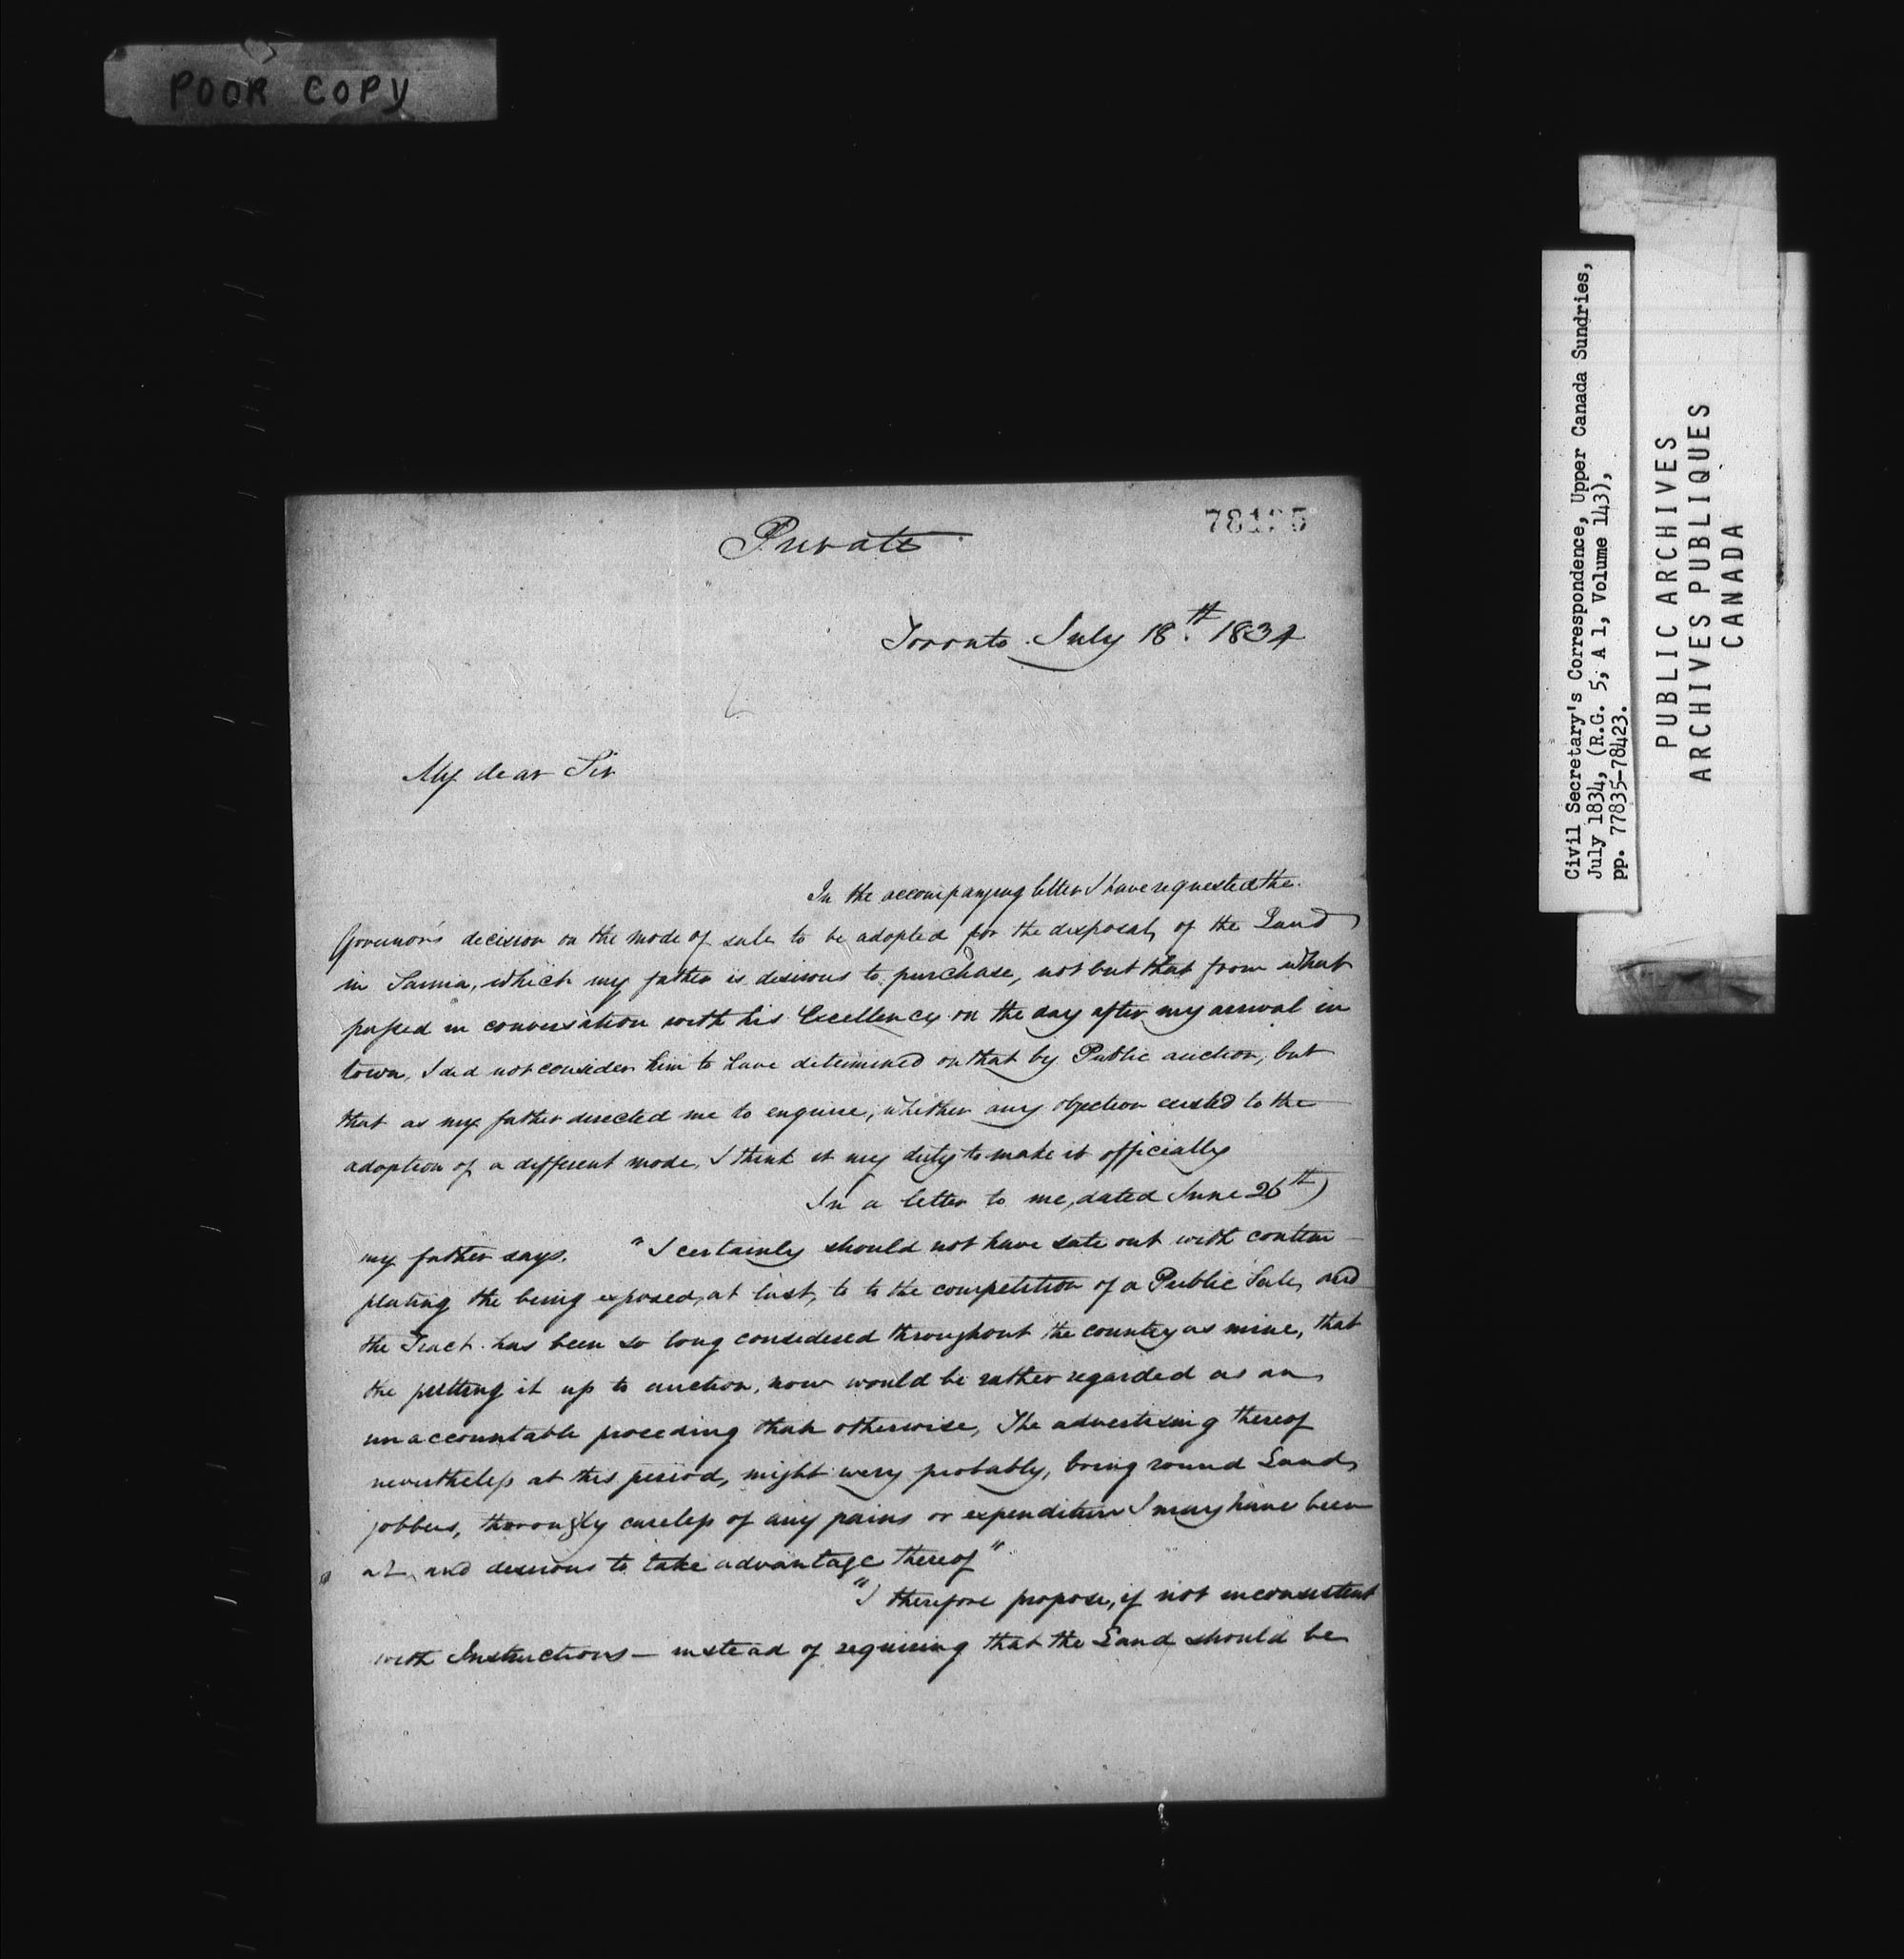 POOR COPY
Private
Toronto July 18th. 1834
My dear Sir
In the accompanying letter I have requested the
Governor's decision on the mode of sale to be adopted for the disposal, of the Land
in Sarnia, which my father is desirous to purchase, not but that from what
passed in conversation with his Excellency on the day after my arrival in
town, I did not consider him to have determined on that by Public auction, but
that as my father directed me to enquire, whether any objection existed to the
adoption of a different mode, I think it my duty to make it officially
In a letter to me, dated June 26th)
my father says. "I certainly should not have sate out with contem-
plating the being exposed, at last, to to the competition of a Public Sale, and
the Tract has been so long considered throughout the country as mine, that
the putting it up to auction, now would be rather regarded as an
unaccountable proceding than otherwise, The advertising thereof
nevertheless at this period, might very probably, bring round Land
jobbers, thoroughly careless of any pains or expenditure I may have been
at, and desirous to take advantage thereof"
"I therefore propose, if not inconsistent
with Instructions — instead of requiring that the Land should be
Civil Secretary's Correspondence, Upper Canada Sundries,
July 1834, (R.G. 5, A 1, Volume 143),
pp. 77835-78423.
PUBLIC ARCHIVES
ARCHIVES PUBLIQUES
CANADA